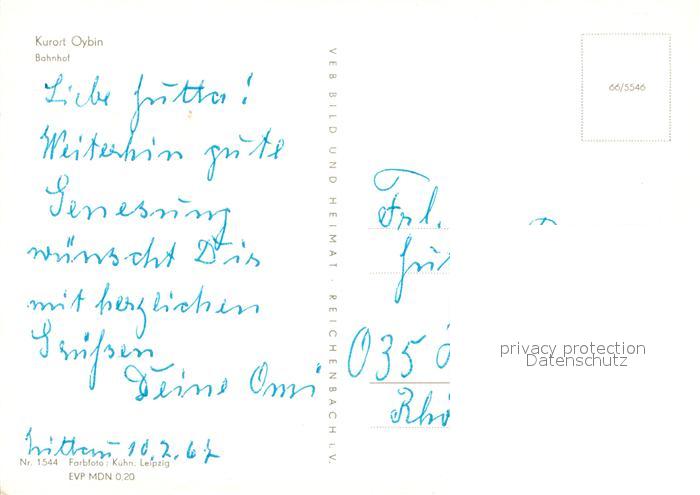 Kurort Oybin
Bahnhof
Liebe Jutta!
Weiterhin gute
Genesung
wünscht Dir
mit herzlichen
Grüßen
Deine Omi
Zittau 10.2.67
Nr. 1544 Farbfoto: Kuhn, Leipzig
EVP MDN 0,20
VEB BILD UND HEIMAT · REICHENBACH i. V.
66/5546
Frl.
035
privacy protection
Datenschutz